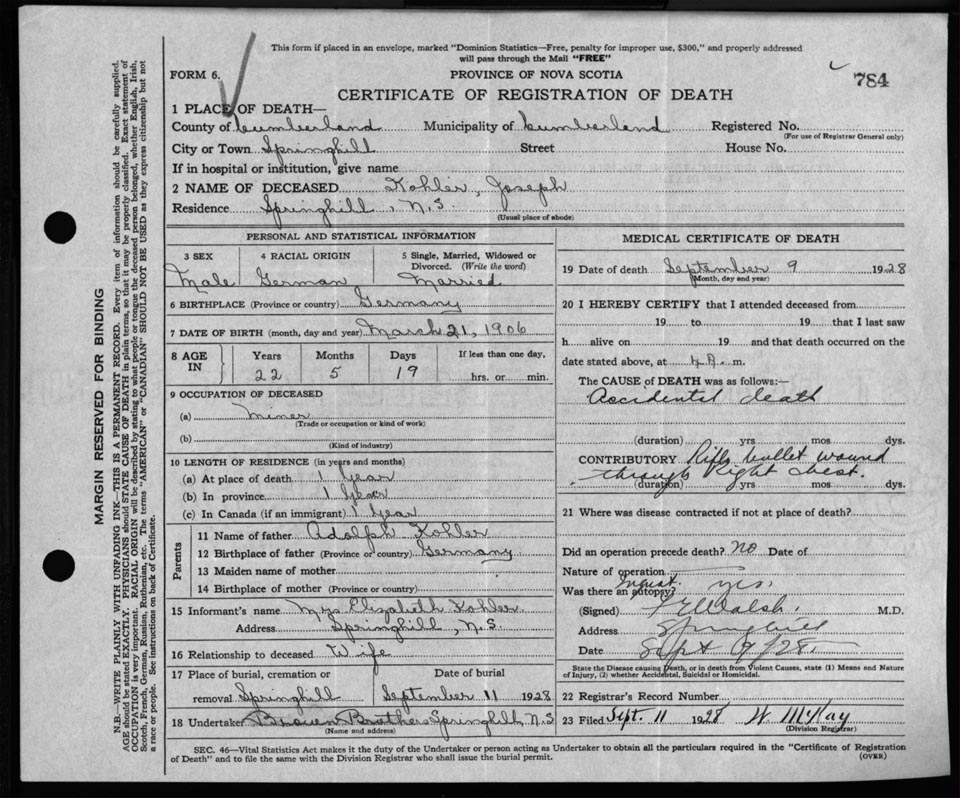 This form if placed in an envelope, marked "Dominion Statistics—Free, penalty for improper use, $300," and properly addressed
will pass through the Mail "FREE"
FORM 6.
PROVINCE OF NOVA SCOTIA
784
CERTIFICATE OF REGISTRATION OF DEATH
1 PLACE OF DEATH—
County of Cumberland Municipality of Cumberland Registered No.
(For use of Registrar General only)
City or Town Springhill Street House No.
If in hospital or institution, give name
2 NAME OF DECEASED Kohler, Joseph
Residence Springhill, N.S.
(Usual place of abode)
PERSONAL AND STATISTICAL INFORMATION
3 SEX 4 RACIAL ORIGIN 5 Single, Married, Widowed or
Divorced. (Write the word)
Male German Married
6 BIRTHPLACE (Province or country) Germany
7 DATE OF BIRTH (month, day and year) March 21, 1906
8 AGE IN Years Months Days If less than one day,
22 5 19 hrs. or min.
9 OCCUPATION OF DECEASED
(a) Miner
(Trade or occupation or kind of work)
(b)
(Kind of industry)
10 LENGTH OF RESIDENCE (in years and months)
(a) At place of death 1 Year
(b) In province 1 Year
(c) In Canada (if an immigrant) 1 Year
Parents
11 Name of father Adolph Kohler
12 Birthplace of father (Province or country) Germany
13 Maiden name of mother
14 Birthplace of mother (Province or country)
15 Informant's name Mrs Elizabeth Kohler
Address Springhill, N.S.
16 Relationship to deceased Wife
17 Place of burial, cremation or Date of burial
removal Springhill September 11 1928
18 Undertaker Brown Brothers Springhill N.S
(Name and address)
MEDICAL CERTIFICATE OF DEATH
19 Date of death September 9 1928
(Month, day and year)
20 I HEREBY CERTIFY that I attended deceased from
19 to 19 that I last saw
h alive on 19 and that death occurred on the
date stated above, at 4 A. m.
The CAUSE of DEATH was as follows:—
Accidental death
(duration) yrs. mos. dys.
CONTRIBUTORY Rifle bullet wound
through right chest.
(duration) yrs. mos. dys.
21 Where was disease contracted if not at place of death?
Did an operation precede death? No Date of
Nature of operation
Inquest
Was there an autopsy? yes.
(Signed) Walsh, M.D.
Address Springhill
Date Sept 9/28
State the Disease causing Death, or in death from Violent Causes, state (1) Means and Nature
of Injury, (2) whether Accidental, Suicidal or Homicidal.
22 Registrar's Record Number
23 Filed Sept. 11 1928 W McKay
(Division Registrar)
SEC. 46—Vital Statistics Act makes it the duty of the Undertaker or person acting as Undertaker to obtain all the particulars required in the "Certificate of Registration
of Death" and to file the same with the Division Registrar who shall issue the burial permit.
(OVER)
MARGIN RESERVED FOR BINDING
N.B.—WRITE PLAINLY WITH UNFADING INK—THIS IS A PERMANENT RECORD. Every item of information should be carefully supplied.
AGE should be stated EXACTLY. PHYSICIANS should STATE CAUSE OF DEATH in plain terms, so that it may be properly classified. Exact statement of
OCCUPATION is very important. RACIAL ORIGIN will be described by stating to what people or tongue the deceased person belonged, whether English, Irish,
Scotch, French, German, Russian, Ruthenian, etc. The terms "AMERICAN" or "CANADIAN" SHOULD NOT BE USED as they express citizenship but not
a race or people. See instructions on back of Certificate.